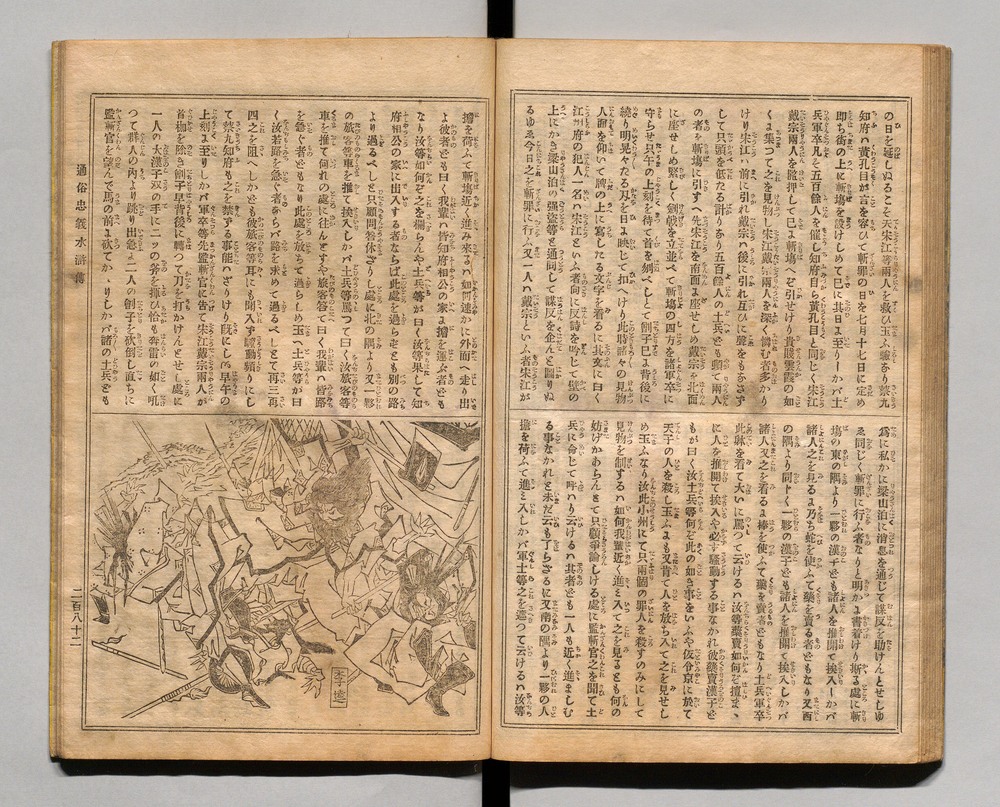 の日を延しぬることを天宋江等兩人を救ひ玉ふ處あり禁九
知府ハ黄孔目が言を容ひて斬罪の日を七月十七日に定め
即ち衙の上に斬塲を設けしめて巳に其日ま至りーかバ土
兵軍卒凡そ五百餘人を催し知府自ら黄孔目と同じく宋江
戴宗兩人を路押して巳ま斬塲へぞ引せけり貴賤雲霞の如
くま集つて之を見物し宋江戴宗兩人を深く憐む者多かり
けり宋江ハ前に引れ戴宗ハ後に引れ互ひに聲をも出さず
して只頭を低たる計りあり五百餘人の土兵ども動て兩人
の者を斬塲に引すへ先宋江を南面ま座せしめ戴宗を北面
に座せしめ緊しく劔戟を立並べて斬塲の四方を諸軍卒に
守らせ只午の上刻を待て首を刎べしとて劊子巳ま背後に
繞り明晃々たる刃を日ま映じて扣へけり此時諸々の見物
人面を仰いて牌の上に寫したる文字を着るに其文に曰く
江州府の犯人一名ハ宋江といふ者向に反詩を吟じて壁の
上にかき梁山泊の强盗等と通同して謀反を企んと圖りぬ
るゆゑ今日之を斬罪に行ふ又一人ハ戴宗といふ者宋江が
爲に私かに梁山泊に消息を通じて謀反を助けんとせしゆ
ゑ同じく斬罪に行ふ者なりと明かま書着けり斯る處に斬
塲の東の隅より一夥の漢子ども諸人を推開て挨入しかバ
諸人之を見るま乃ち蛇を使ふて藥を賣る者どもなり又西
の隅より同トく一夥の漢子ども諸人を推開て挨入しかバ
諸人又之を着るま棒を使ふて藥を賣者どもなり土兵軍卒
此躰を着て大いに罵つて云けるハ汝等藥賣如何ぞ擅まゝ
に人を推開て挨入や必ず騷動する事なかれ彼藥賣漢子ど
もが曰く汝土兵等何ぞ此の如き事をいふや仮令京に於て
天子の人を殺し玉ふまも又肯て人を放ち入て之を見せし
め玉ふなり汝此小州にて只兩個の罪人を殺すのみにして
見物を制するハ如何我輩近く進ミ入つて之を見るとも何の
妨げかあらんとて只顧爭論しける處に監斬官之を聞て土
兵に命じて呼ハり云けるハ其者ども一人も近く進ましむ
る事なかれと未だ云も了らざるに又南の隅より一夥の人
擔を荷ふて進ミ入しかバ軍士等之を遮つて云けるハ汝等
擔を荷ふて斬塲近く進み來るハ如何速かに外面へ出
よ彼者ども曰く我輩ハ皆知府相公の家ま擔を運ぶ者ども
なり汝等如何ぞ之を攔らんや土兵等が曰く汝等果して知
府相公の家に出入する者ならば此處を過らずとも別の路
より過るべしと只顧問答休ざりし處に北の隅より又一夥
の旅客等車を推て挨入しかバ土兵等罵つて曰く汝旅客等
車を推て何れの處に往んとすや旅客答て曰く我輩ハ皆路
を急ぐ者どもなり此處を放ちて過らしめ玉へ土兵等が曰
く汝若路を急ぐ者ならバ別路を求めて過るべしとて再三再
四之を阻しかども彼旅客等耳にも聞入ず騷動頻りにし
て禁九知府も之を禁ずる事能ハざりけり既にして早午の
上刻ま至りしかバ軍卒等先監斬官に告て宋江戴宗兩人が
首枷を除き劊子早背後に轉つて刀を打かけんとせし處に
一人の大漢子双の手に二ツの斧を揮ひ恰も奔雷の如く吼
つて群人の內より跳り出急ま二人の劊子を砍倒し直ちに
監斬官を望んで馬の前ま砍てかゝりしかバ諸の土兵ども
通俗忠義水滸傳
二百八十二
李逵